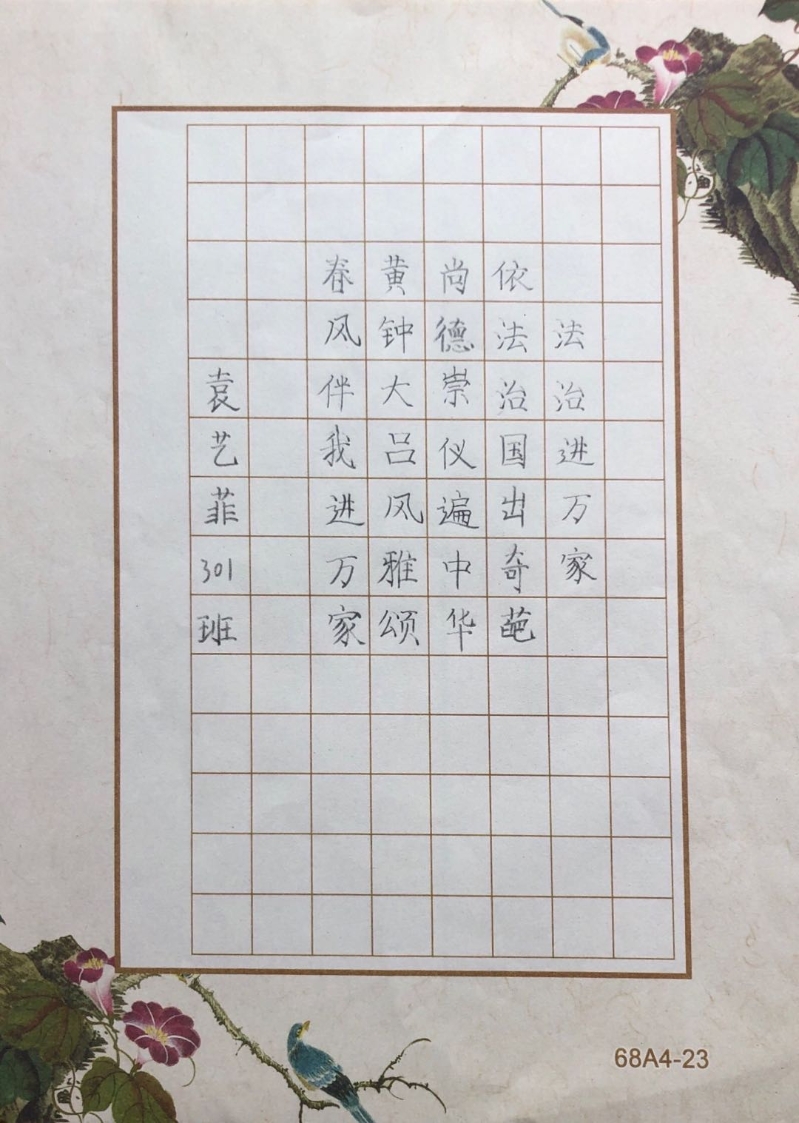 法治进万家
依法治国出奇葩
尚德崇仪遍中华
黄钟大吕风雅颂
春风伴我进万家
袁艺菲301班
68A4-23